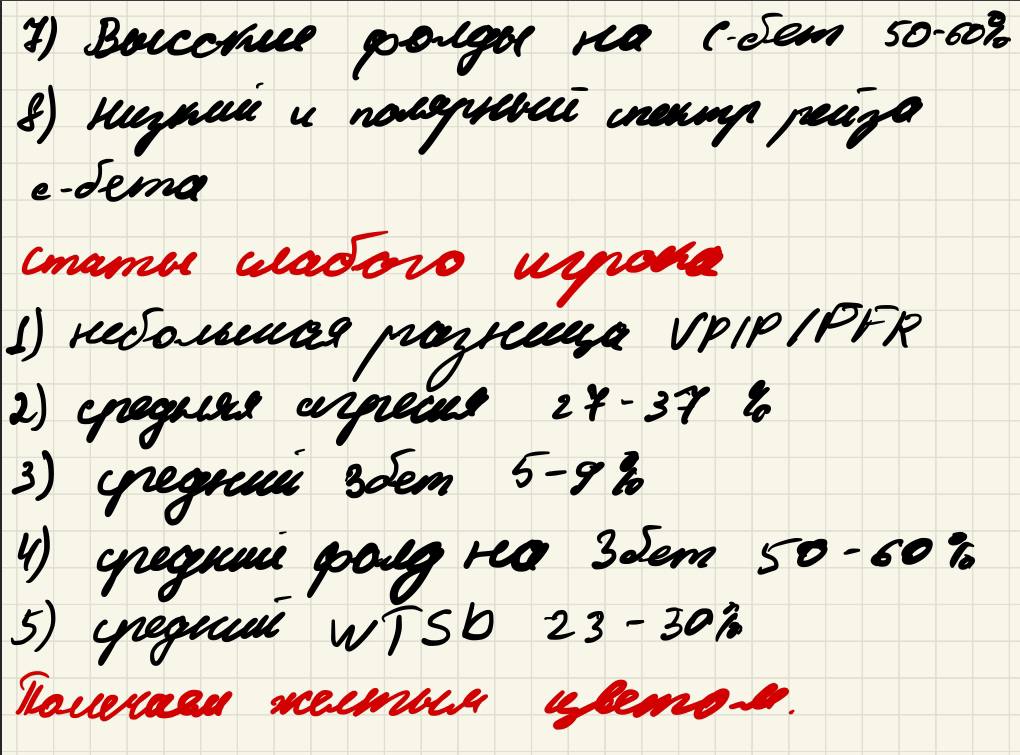 7) Высокие фолды на с-бет 50-60%
8) Низкий и полярный спектр рейза
с-бета
Статы слабого игрока
1) небольшая разница VPIP/PFR
2) средняя агресия 27-37 %
3) средний 3бет 5-9%
4) средний фолд на 3бет 50-60%
5) средний WTSD 23-30%
Помечаем желтым цветом.